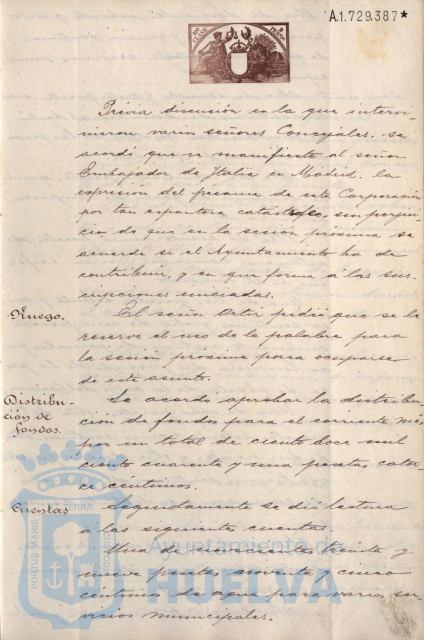 A.1.729.387*
Previa discusión en la que intervi-
nieron varios señores Concejales, se
acordó que se manifieste al señor
Embajador de Italia en Madrid, la
expresión del pesame de esta Corporación
por tan espantosa catástrofe, sin perjui-
cio de que en la sesión próxima, se
acuerde si el Ayuntamiento ha de
contribuir, y en que forma á las sus-
cripciones iniciadas.
Ruego.
El señor pidió que se le
reserve el uso de la palabra para
la sesión próxima para ocuparse
de este asunto.
Distribu-
ción de
fondos.
Se acordó aprobar la distribu-
ción de fondos para el corriente mes
por un total de ciento doce mil
ciento cuarenta y una pesetas cator-
ce céntimos.
Cuentas
Seguidamente se dió lectura
á las siguiente cuentas.
Una de novecientas treinta y
nueve pesetas noventa y cinco
centimos de agua para varios ser-
vicios municipales.
PORTUS MARIS ET TERRAE CUSTODIA
Ayuntamiento de
HUELVA